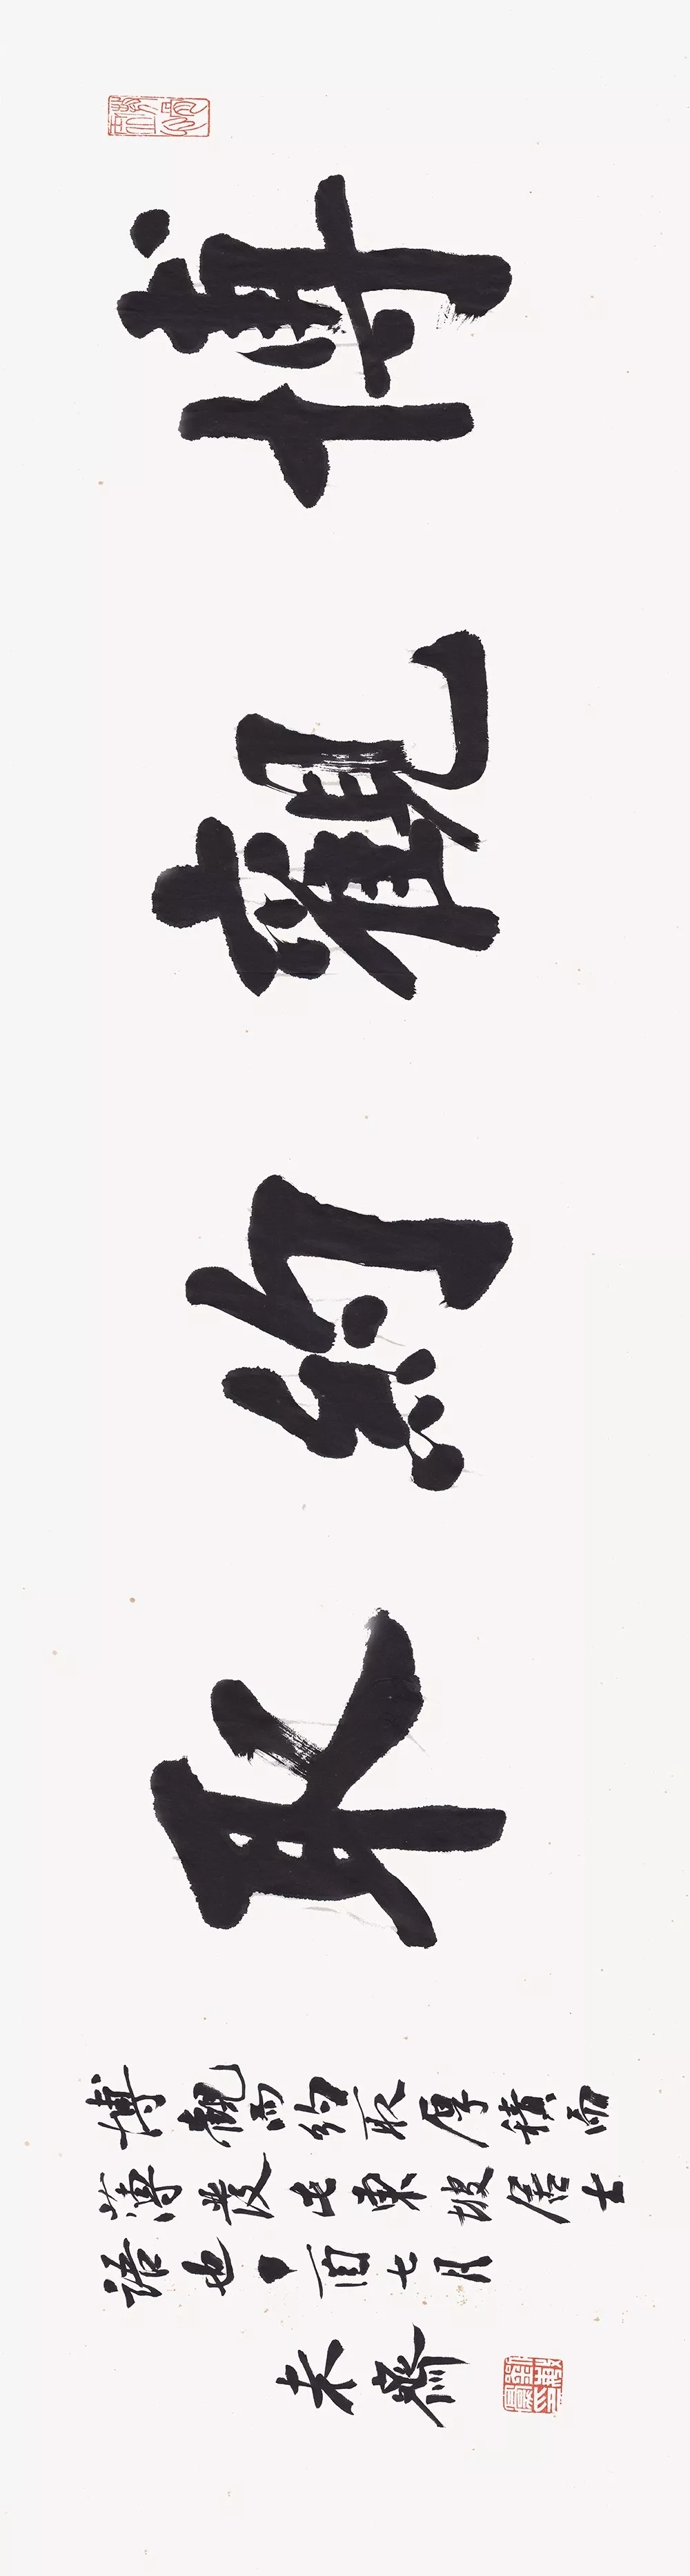 博觀約取
博觀而約取厚積而
薄發此東坡居士
語也丁酉七月
未齋